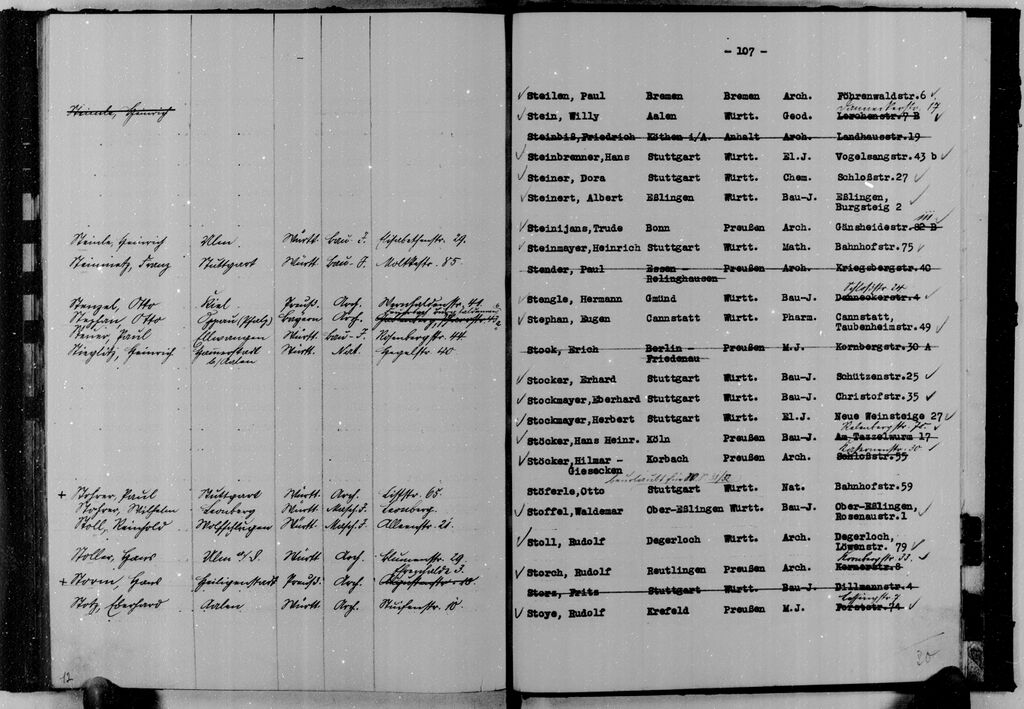 Steinle, Heinrich
Steinle, Heinrich Ulm Württ. Bau-J. Elisabethenstr. 29.
Steinmetz, Franz Stuttgart Württ. Bau-J. Moltkestr. 85
Stengel, Otto Kiel Preuß. Arch. 44
Stephan, Otto Speyer (Pfalz) Bayern Arch.
Stener, Paul Ellwangen Württ. Bau-J. Rosenbergstr. 44
Stieglitz, Heinrich Württ. Nat. Hegelstr. 40
b/Aalen
+ Stohrer, Paul Stuttgart Württ. Arch. Liststr. 65.
Stohrer, Wilhelm Leonberg Württ. Masch.J. Leonberg.
Stoll, Reinhold Wolfschlugen Württ. Masch.J. Alleenstr. 21.
Stoller, Hans Ulm a/D. Württ. Arch. Blumenstr. 29.
+ Storm, Hans Heiligenstadt Preuß. Arch.
Stotz, Eberhard Aalen Württ. Arch.
12
- 107 -
✓ Steilen, Paul Bremen Bremen Arch. Föhrenwaldstr.6 ✓
Danneckerstr. 17
✓ Stein, Willy Aalen Württ. Geod. Lerchenstr.7 B ✓
Steinbiß,Friedrich Köthen i/A. Anhalt Arch. Landhausstr.19
✓ Steinbrenner,Hans Stuttgart Württ. El.J. Vogelsangstr.43 b ✓
✓ Steiner, Dora Stuttgart Württ. Chem. Schloßstr.27 ✓
✓ Steinert, Albert Eßlingen Württ. Bau-J. Eßlingen, ✓
Burgsteig 2
✓ Steinijans,Trude Bonn Preußen Arch. Gänsheidestr.82 B
✓ Steinmayer,Heinrich Stuttgart Württ. Math. Bahnhofstr.75 ✓
Stender, Paul Essen - Preußen Arch. Kriegsbergstr.40
Relinghausen
Schloßstr. 24
✓ Stengle, Hermann Gmünd Württ. Bau-J. Danneckerstr.4 ✓
✓ Stephan, Eugen Cannstatt Württ. Pharm. Cannstatt,
Taubenheimstr.49 ✓
Stock, Erich Berlin - Preußen M.J. Kornbergstr.30 A
Friedenau
✓ Stocker, Erhard Stuttgart Württ. Bau-J. Schützenstr.25 ✓
✓ Stockmayer,Eberhard Stuttgart Württ. Bau-J. Christofstr.35 ✓
✓ Stockmayer,Herbert Stuttgart Württ. El.J. Neue Weinsteige 27 ✓
✓ Stöcker,Hans Heinr. Köln Preußen Bau-J. Am Tazzelwurm 17
✓ Stöcker,Hilmar - Korbach Preußen Arch. Schloßstr.55
Giesecken
beurlaubt für
Stöferle,Otto Stuttgart Württ. Nat. Bahnhofstr.59
✓ Stoffel,Waldemar Ober-Eßlingen Württ. Bau-J. Ober-Eßlingen, ✓
Rosenaustr.1
✓ Stoll, Rudolf Degerloch Württ. Arch. Degerloch,
Löwenstr. 79 ✓
Kornbergstr. 33. ✓
✓ Storch, Rudolf Reutlingen Preußen Arch. Kernerstr.8
Storz, Fritz Stuttgart Württ. Bau-J. Dillmannstr.4
Lessingstr. 7
✓ Stoye, Rudolf Krefeld Preußen M.J. Forststr.74 ✓
30